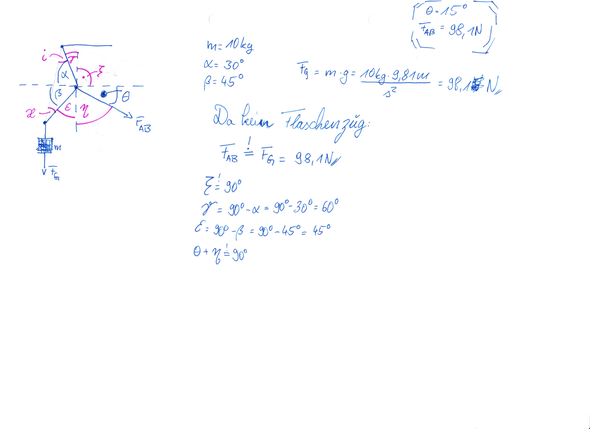 θ = 15°
F_AB = 98,1N
m = 10kg
α = 30°
β = 45°
F_G = m · g = 10kg · 9,81m / s² = 98,1 N
Da kein Flaschenzug:
F_AB =! F_G = 98,1N
ξ =! 90°
γ = 90° - α = 90° - 30° = 60°
ε = 90° - β = 90° - 45° = 45°
θ + η =! 90°
α
ξ
β
ε
η
θ
F_AB
m
F_G